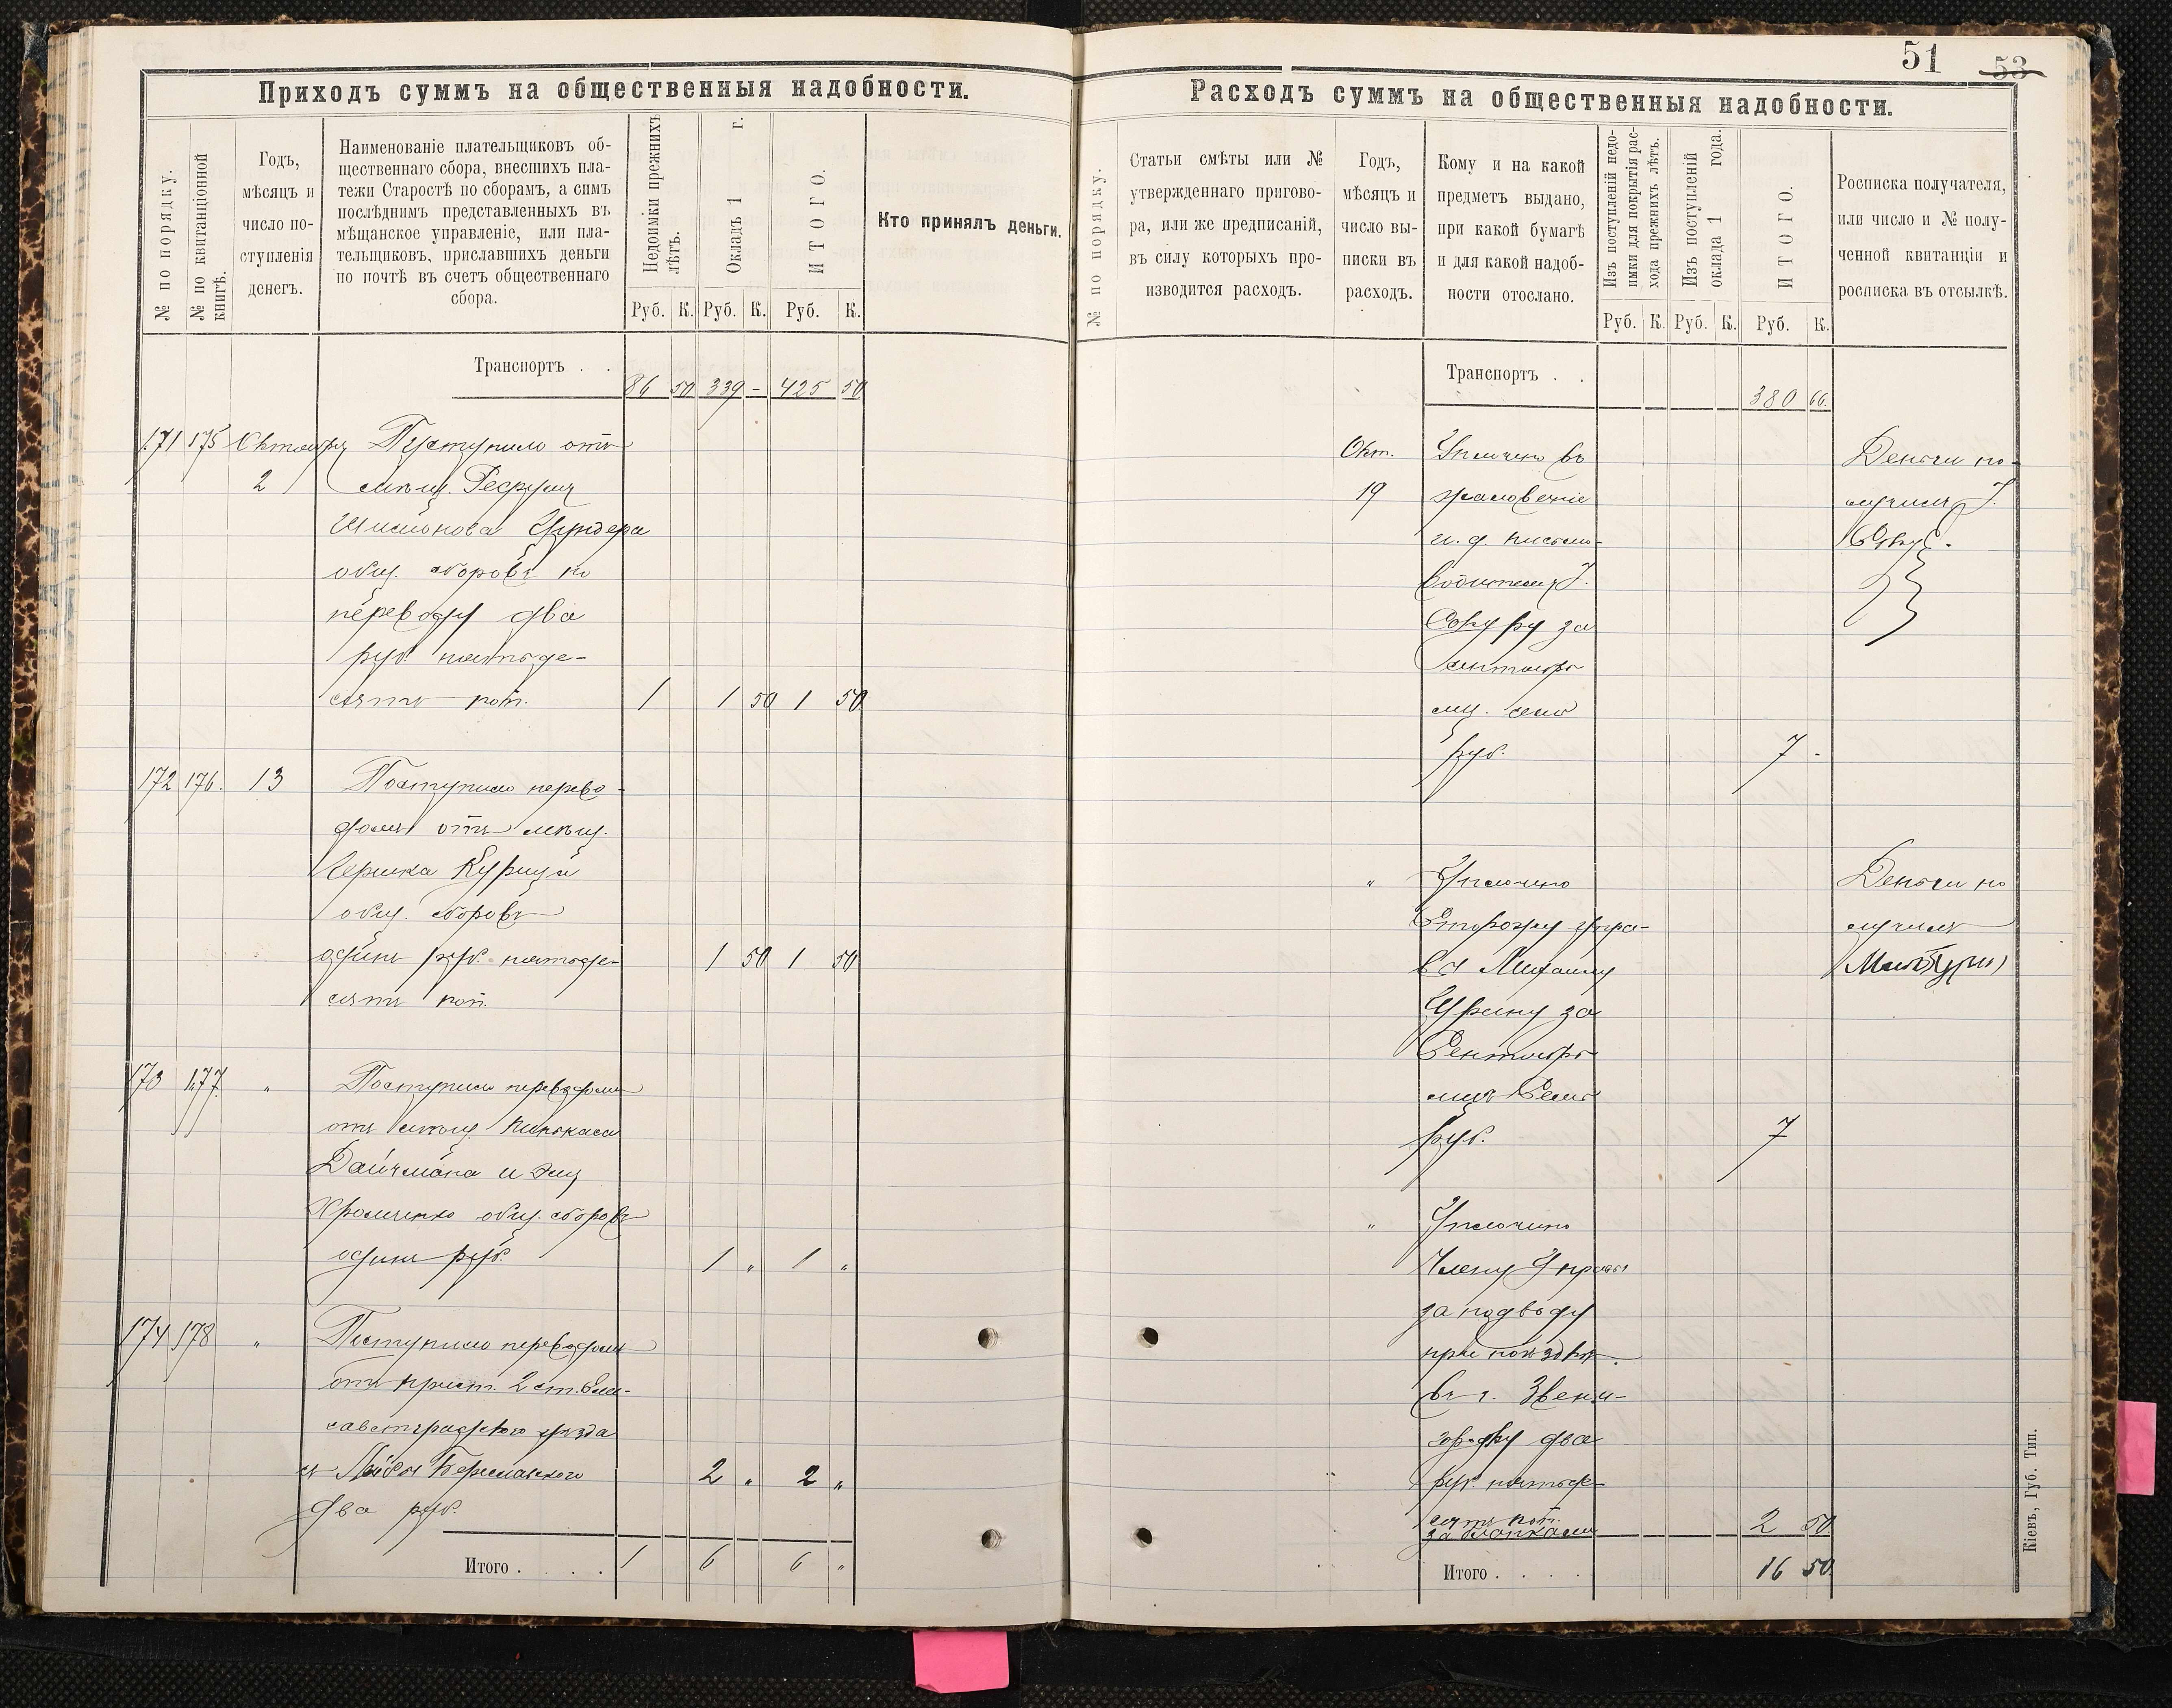 51
53
Приходъ суммъ на общественныя надобности.
№ по порядку.
№ по квитанціонной
книгѣ.
Годъ,
мѣсяцъ и
число по-
ступленія
денегъ.
Наименованіе плательщиковъ об-
щественнаго сбора, внесшихъ пла-
тежи Старостѣ по сборамъ, а симъ
послѣднимъ представленныхъ въ
мѣщанское управленіе, или пла-
тельщиковъ, приславшихъ деньги
по почтѣ въ счетъ общественнаго
сбора.
Недоимки прежнихъ
лѣтъ.
Окладъ 1 г.
ИТОГО.
Кто принялъ деньги.
Руб. К. Руб. К. Руб. К.
Транспортъ . .
86 50 339 - 425 50
171 175 Октября Поступило отъ
2 мѣщ.
общ. сборовъ по
переводу два
руб. пятьде-
сятъ коп. 1 1 50 1 50
172 176. 13 Поступило перево-
домъ отъ мѣщ.
Гершка Курица
общ. сборовъ
одинъ руб. пятьде- 1 50 1 50
сятъ коп.
173 177. „ Поступило переводомъ
отъ мѣщ. Пинькаса
Дайчмана и
общ. сборовъ
одинъ руб. 1 „ 1 „
174 178 „ Поступило переводомъ
отъ прист. 2 ст. Ели-
саветградского уѣзда
2 „ 2 „
два руб.
Итого . . . . 1 6 6 „
Расходъ суммъ на общественныя надобности.
№ по порядку.
Статьи смѣты или №
утвержденнаго пригово-
ра, или же предписаній,
въ силу которыхъ про-
изводится расходъ.
Годъ,
мѣсяцъ и
число вы-
писки въ
расходъ.
Кому и на какой
предметъ выдано,
при какой бумагѣ
и для какой надоб-
ности отослано.
Изъ поступленій недо-
имки для покрытія рас-
хода прежнихъ лѣтъ.
Изъ поступленій
оклада 1 года.
ИТОГО.
Росписка получателя,
или число и № полу-
ченной квитанціи и
росписка въ отсылкѣ.
Руб. К. Руб. К. Руб. К.
Транспортъ . .
380 66.
Окт. Уплочено въ Деньги по-
19 жалованіе лучилъ
и. д. письмо-
водителя
за
сентябрь
мц. семь
руб. 7 -
„ Уплочено Деньги по
Сторожу упра- лучилъ
вы Михаилу
Щрину за
Сентябрь
мцъ Семь
руб. 7
„ Уплочено
Члену Управы
за подводу
при поѣздкѣ
въ г. Звени-
городку два
руб. пятьде-
сятъ коп.
за бланками 2 50
Итого . . . . 16 50.
Кіевъ, Губ. Тип.